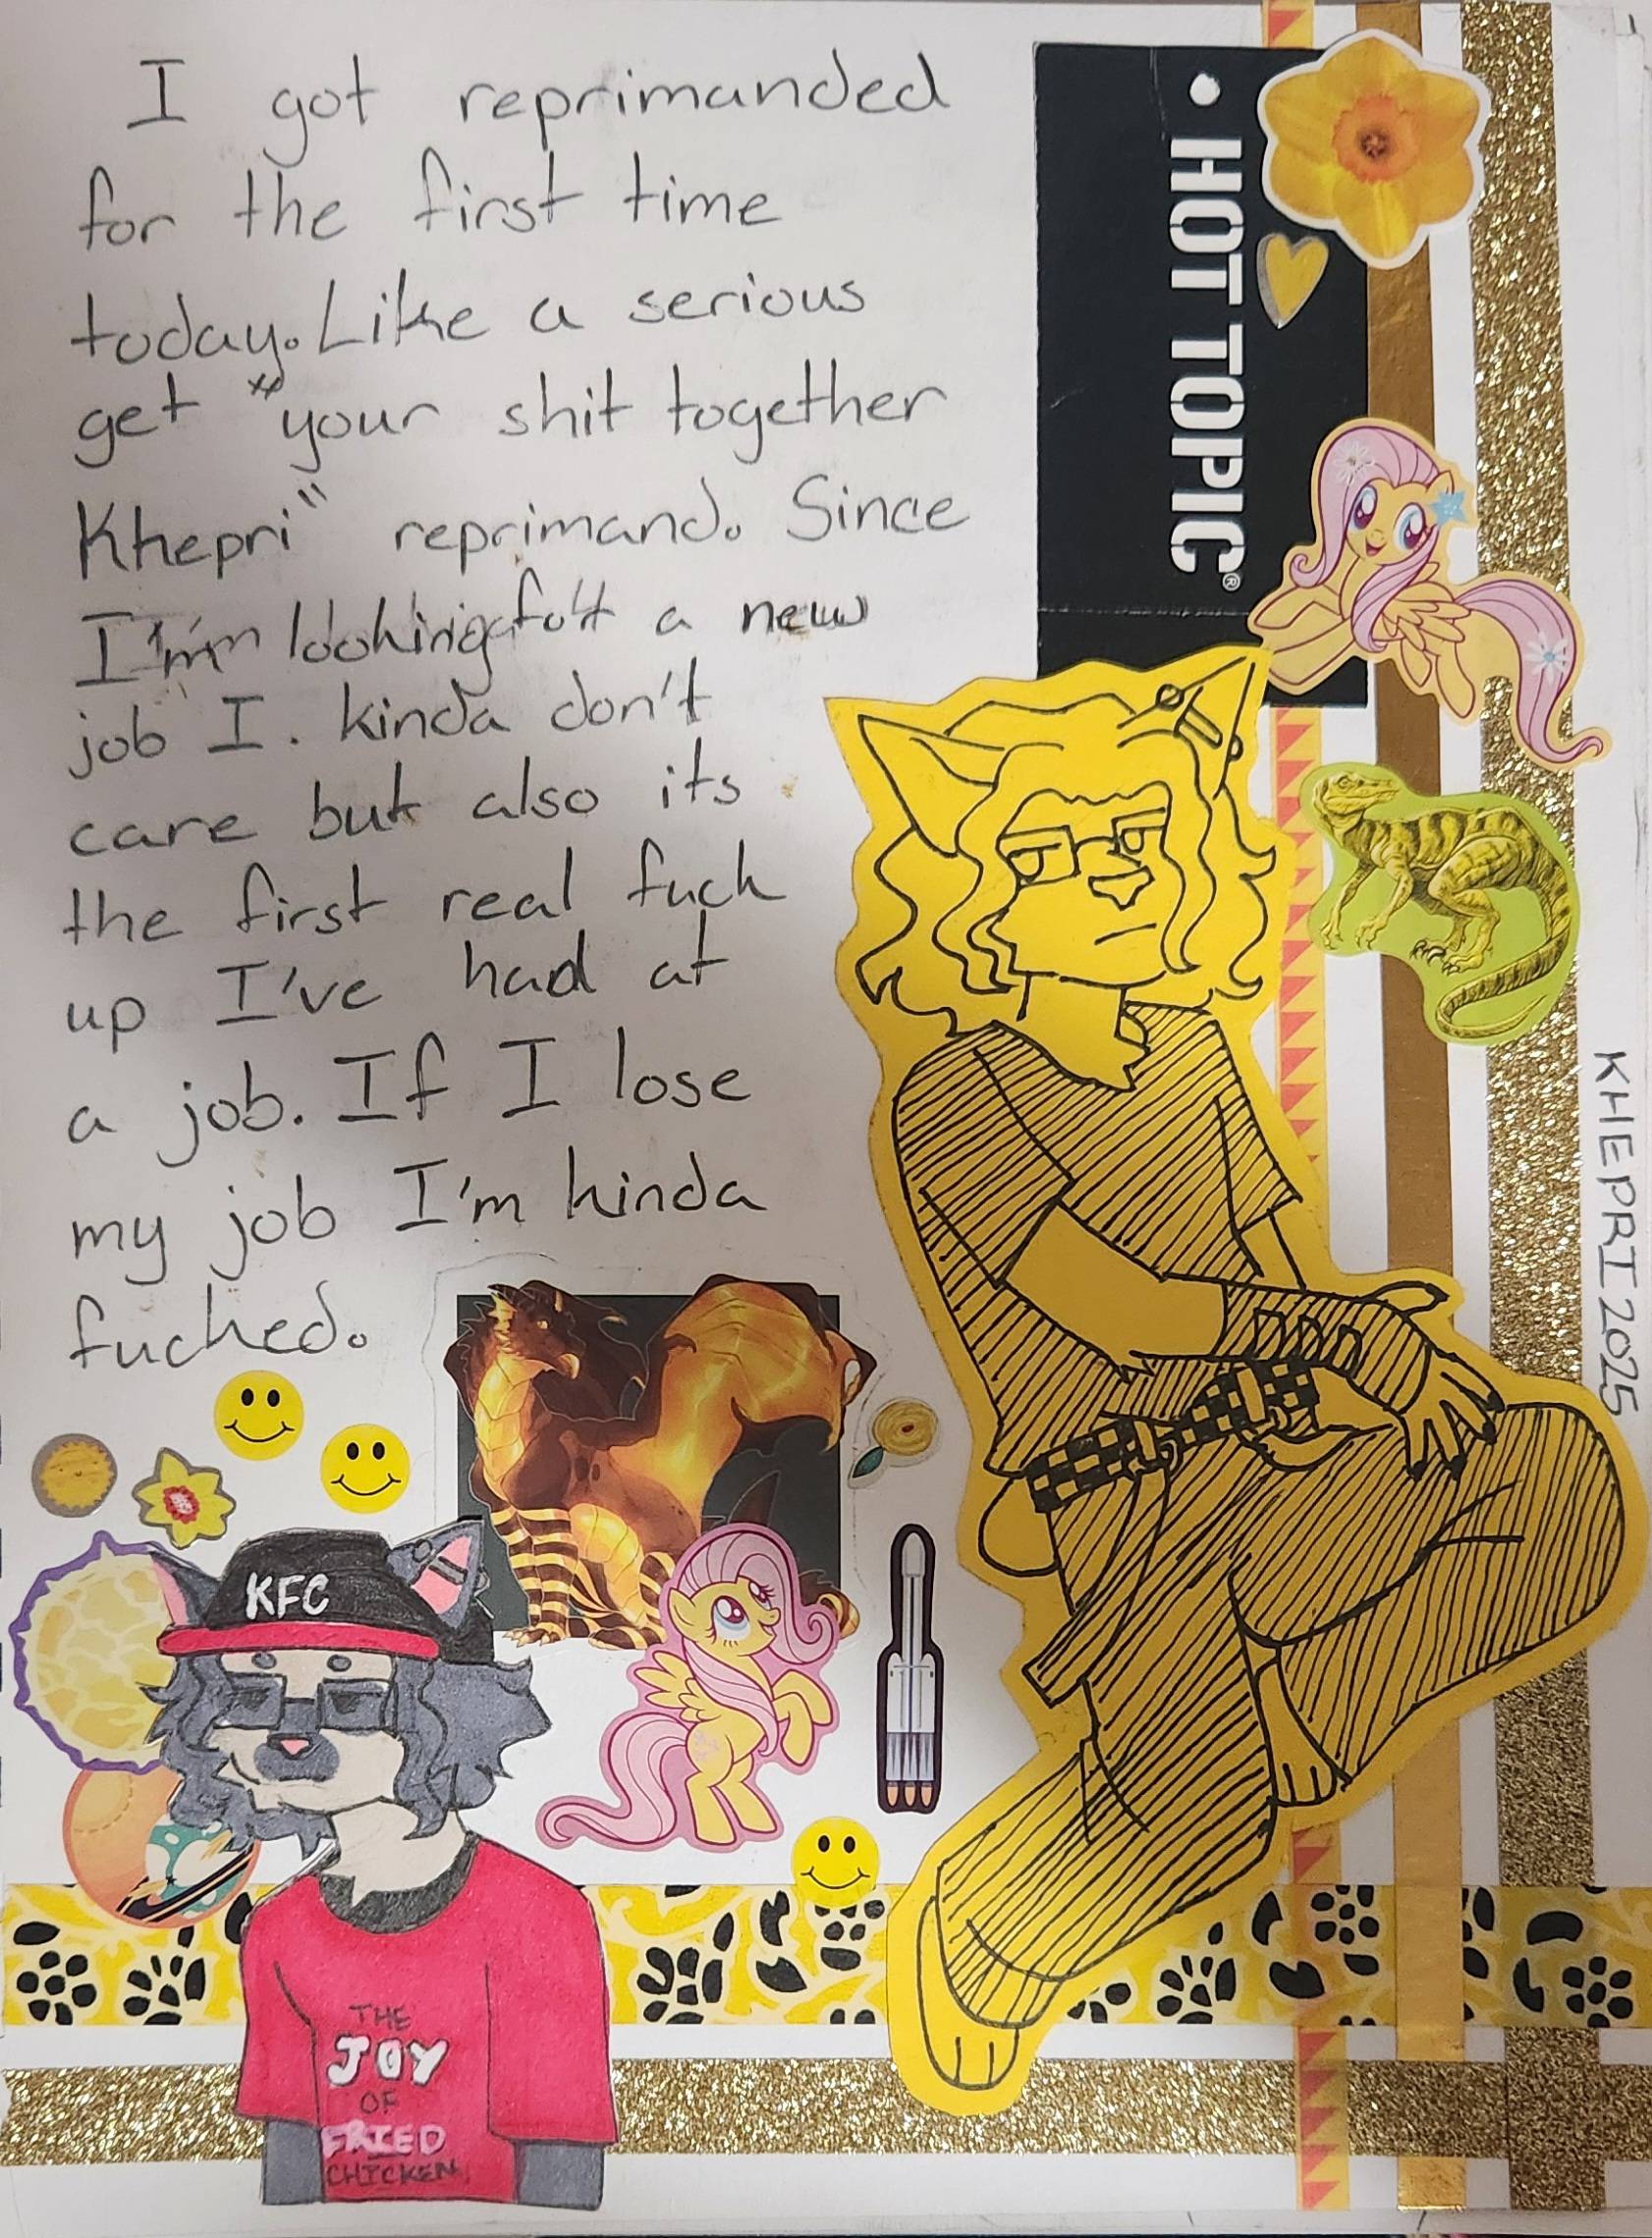 I got reprimanded
for the first time
today. Like a serious
get "your shit together
Khepri" reprimand. Since
I'm looking for a new
job I. kinda don't
care but also its
the first real fuck
up I've had at
a job. If I lose
my job I'm kinda
fucked.
HOT TOPIC®
KHEPRI 2025
KFC
THE
JOY
OF
FRIED
CHICKEN